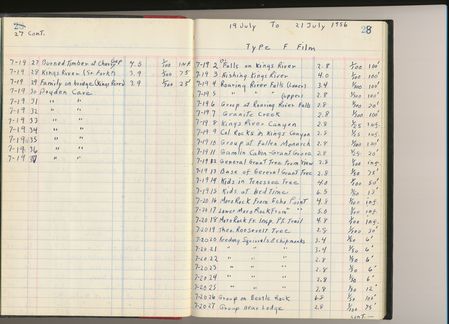 28
27 Cont.
7-19 27 Burned Timber at Charlotte 4.0 1/100 inf
7-19 28 Kings River (So. Fork) 3.9 1/100 75'
7-19 29 Family on bridge (Kings River) 3.9 1/100 25'
7-19 30 Boyden Cave
7-19 31 " "
7-19 32 " "
7-19 33 " "
7-19 34 " "
7-19 35 " "
7-19 36 " "
7-19 37 " "
19 July To 21 July 1956
28
Type F Film
7-19 2 Falls on Kings River 2.8 1/100 100'
7-19 3 Fishing Kings River 4.0 1/100 100'
7-19 4 Roaring River Falls (lower) 3.4 1/100 100'
7-19 5 " " " (upper) 2.8 1/100 100'
7-19 6 Group at Roaring River Falls 2.8 1/100 20'
7-19 7 Granite Creek 2.8 1/100 100'
7-19 8 Kings River Canyon 2.8 inf.
7-19 9 Col Rocks in Kings Canyon 2.8 inf.
7-19 10 Group at Fallen Monarch 2.8
7-19 11 Gamlin Cabin-Grant Grove 2.8 20'
7-19 12 General Grant Tree From View 2.8 inf.
7-19 13 Base of General Grant Tree 2.8 35'
7-19 14 Kids in Tenessee Tree 4.0 50'
7-19 15 Kids at Bed Time 6.5 10'
7-20 16 Moro Rock From Echo Point 4.8 inf.
7-20 17 Lower Moro Rock From " " 5.0 inf.
7-20 18 Moro Rock Fr. P.S. Trail 4.8 inf.
7-20 19 Theo. Roosevelt Tree 2.8 30'
7-20 20 Feeding Squirrels & chipmunks 3.4 1/50 6'
7-20 21 " " " 3.4 1/50 6'
7-20 22 " " " 2.8 1/50 6'
7-20 23 " " " 2.8 1/50 6'
7-20 24 " " " 2.8 1/50 6'
7-20 25 " " " 2.8 1/50 12'
7-20 26 Group on Beetle Rock 6.8 1/50 10'
7-20 27 Group Near Lodge 2.8 75'
cont. —